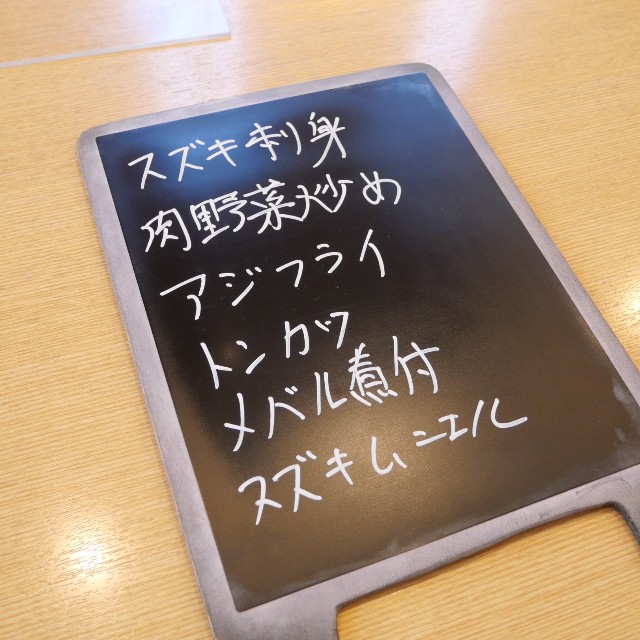 スズキ刺身
肉野菜炒め
アジフライ
トンカツ
メバル煮付
スズキムニエル